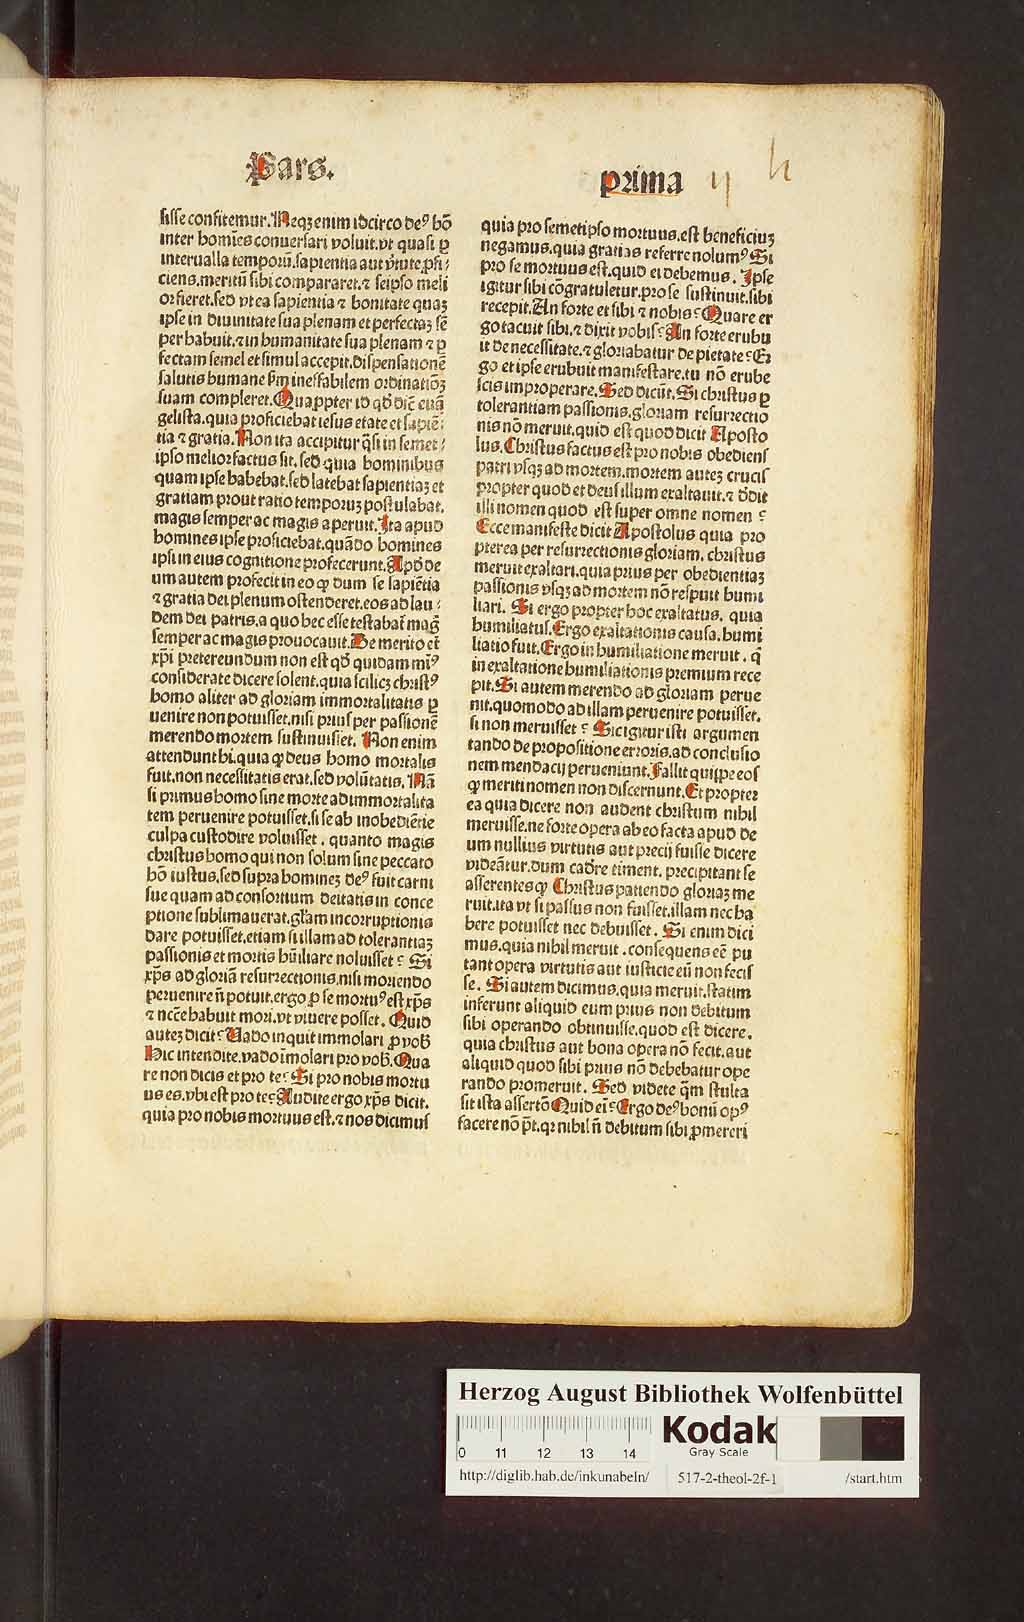 Pars.
prima
sisse confitemur. Neqꝫ enim idcirco deꝰ hō
inter homīes conuersari voluit. vt quasi ꝑ
interualla temporū. sapientia aut v̄tute ꝓfi⸗
ciens. meritū sibi compararet. ⁊ seipso meli
or fieret. sed vt ea sapientia ⁊ bonitate quaꝫ
ipse in diuinitate sua plenam et perfectaꝫ sē
per habuit. ⁊ in humanitate sua plenam ⁊ ꝑ
fectam semel et simul accepit. dispensationē
salutis humane ẜm ineffabilem ordinatiōꝫ
suam compleret. Quaꝓpter id qd̓ dīc̄ euā
gelista. quia proficiebat iesus etate et sapiē⸗
tia ⁊ gratia. Non ita accipitur q̄si in semet⸗
ipso melior factus sit. sed quia hominibus
quam ipse habebat. sed latebat sapientiaꝫ et
gratiam prout ratio temporuꝫ postulabat.
magis semper ac magis aperuit. Ita apud
homines ipse proficiebat. quādo homines
ipsi in eius cognitione profecerunt. Apd̓ de
um autem profecit in eo ꝙ dum se sapiētia
⁊ gratia dei plenum ostenderet. eos ad lau⸗
dem dei patris. a quo hec esse testabat̄ magꝭ
semper ac magis prouocauit. De merito et̄
xp̄i pretereundum non est qd̓ quidam miꝰ
considerate dicere solent. quia scilicꝫ christꝰ
homo aliter ad gloriam immortalitatis ꝑ
uenire non potuisset. nisi prius per passionē
merendo mortem sustinuisset. Non enim
attendunt hi. quia ꝙ deus homo mortalis
fuit. non necessitatis erat. sed volūtatis. Nā
si primus homo sine morte ad immortalita
tem peruenire potuisset. si se ab inobediētie
culpa custodire voluisset. quanto magis
christus homo qui non solum sine peccato
hō iustus. sed supra homineꝫ deꝰ fuit carni
sue quam ad consortium deitatis in conce
ptione sublimauerat. gl̄am incorruptionis
dare potuisset. etiam si illam ad tolerantiaꝫ
passionis et mortis hūiliare noluisset? Si
xp̄s ad gloriā resurrectionis. nisi moriendo
peruenire n̄ potuit. ergo ꝓ se mortuꝰ est xp̄s
⁊ nccē habuit mori. vt viuere posset. Quid
auteꝫ dicit? Vado inquit immolari ꝓ vob̄
Hic intendite. vado īmolari pro vob̄. Qua
re non dicis et pro te? Si pro nobis mortu
us es. vbi est pro te? Audite ergo xp̄s dicit.
quia pro nobis mortuus est. ⁊ nos dicimus
quia pro semetipso mortuus. est beneficiuꝫ
negamus. quia gratias referre nolumꝰ. Si
pro se mortuus est. quid ei debemus. Ipse
igitur sibi cōgratuletur. pro se sustinuit. sibi
recepit. An forte et sibi ⁊ nobis? Quare er
go tacuit sibi. ⁊ dixit vobis? An forte erubu
it de necessitate. ⁊ gloriabatur de pietate? Er
go et ipse erubuit manifestare. tu nō erube
scis improperare. Sed dicūt. Si christus ꝑ
tolerantiam passionis. gloriam resurrectio
nis nō meruit. quid est quod dicit Aposto
lus. Christus factus est pro nobis obediens
patri vsqꝫ ad mortem. mortem auteꝫ crucis
propter quod et deus illum exaltauit. ⁊ d̓dit
illi nomen quod est super omne nomen?
Ecce manifeste dicit Apostolus quia pro
pterea per resurrectionis gloriam. christus
meruit exaltari. quia prius per obedientiaꝫ
passionis vsqꝫ ad mortem nō respuit humi
liari. Si ergo propter hoc exaltatus. quia
humiliatus. Ergo exaltationis causa. humi
liatio fuit. Ergo in humiliatione meruit. q̄
in exaltatione humiliationis premium rece
pit. Si autem merendo ad gloriam perue
nit. quomodo ad illam peruenire potuisset.
si non meruisset? Sic igitur isti argumen
tando de propositione erroris. ad conclusio
nem mendacij perueniunt. Fallit quippe eos
ꝙ meriti nomen non discernunt. Et propter
ea quia dicere non audent christum nihil
meruisse. ne forte opera ab eo facta apud de
um nullius virtutis aut precij fuisse dicere
videātur. dum cadēre timent. precipitant se
asserentes ꝙ Christus patiendo gloriaꝫ me
ruit. ita vt si passus non fuisset. illam nec ha
bere potuisset nec debuisset. Si enim dici
mus. quia nihil meruit. consequens eē pu
tant opera virtutis aut iusticie eū non fecis
se. Si autem dicimus. quia meruit. statim
inferunt aliquid eum prius non debitum
sibi operando obtinuisse. quod est dicere.
quia christus aut bona opera nō fecit. aut
aliquid quod sibi prius nō debebatur ope
rando promeruit. Sed videte q̄m stulta
sit ista assertō Quid ei̅? Ergo deꝰ bonū opꝰ
facere nō pt̄. qꝛ nihil n̄ debitum sibi ꝓmereri
Herzog August Bibliothek Wolfenbüttel
0 11 12 13 14
Kodak
Gray Scale
http://diglib.hab.de/inkunabeln/ 517-2-theol-2f-1 /start.htm